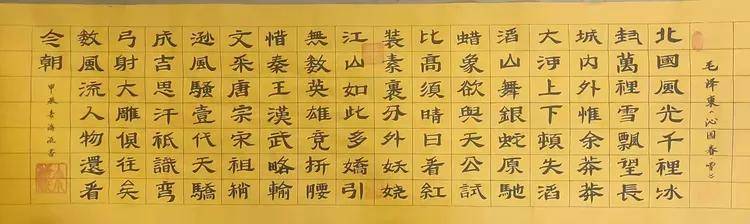 毛泽東《沁园春雪》
北國風光千裡冰
封萬裡雪飄望長
城内外惟余莽莽
大河上下頓失滔
滔山舞銀蛇原馳
蜡象欲與天公試
比高須晴日看紅
裝素裹分外妖娆
江山如此多嬌引
無數英雄竞折腰
惜秦王漢武略輸
文采唐宗宋祖稍
遜風騷壹代天驕
成吉思汗祗識彎
弓射大雕俱往矣
數風流人物還看
今朝
甲辰春